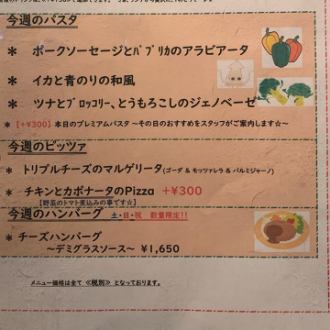 今週のパスタ
* ポークソーセージとﾊﾟﾌﾟﾘｶのアラビアータ
* イカと青のりの和風
* ツナとﾌﾞﾛｯｺﾘｰ、とうもろこしのジェノベーゼ
* 【+¥300】本日のプレミアムパスタ ～その日のおすすめをスタッフがご案内します☆～
今週のピッツァ
* トリプルチーズのマルゲリータ(ゴーダ & モッツァレラ & パルミジャーノ)
* チキンとカポナータのPizza +¥300
【野菜のトマト煮込みの事です☆】
今週のハンバーグ 土・日・祝 数量限定!!
* チーズハンバーグ
～デミグラスソース～ ¥1,650
メニュー価格は全て ≪税別≫ となっております。